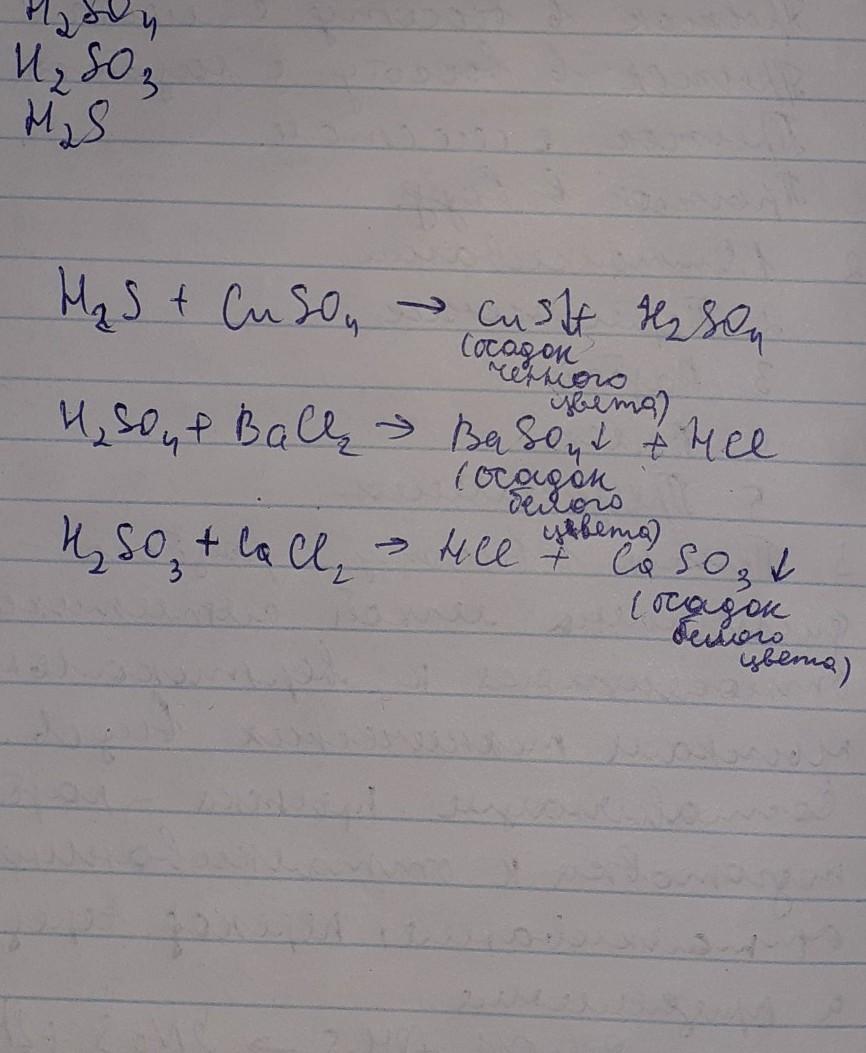 H₂SO₄
H₂SO₃
H₂S
H₂S + CuSO₄ → CuS↓ + H₂SO₄
(осадок
черного
цвета)
H₂SO₄ + BaCl₂ → BaSO₄↓ + HCl
(осадок
белого
цвета)
H₂SO₃ + CaCl₂ → HCl + CaSO₃↓
(осадок
белого
цвета)